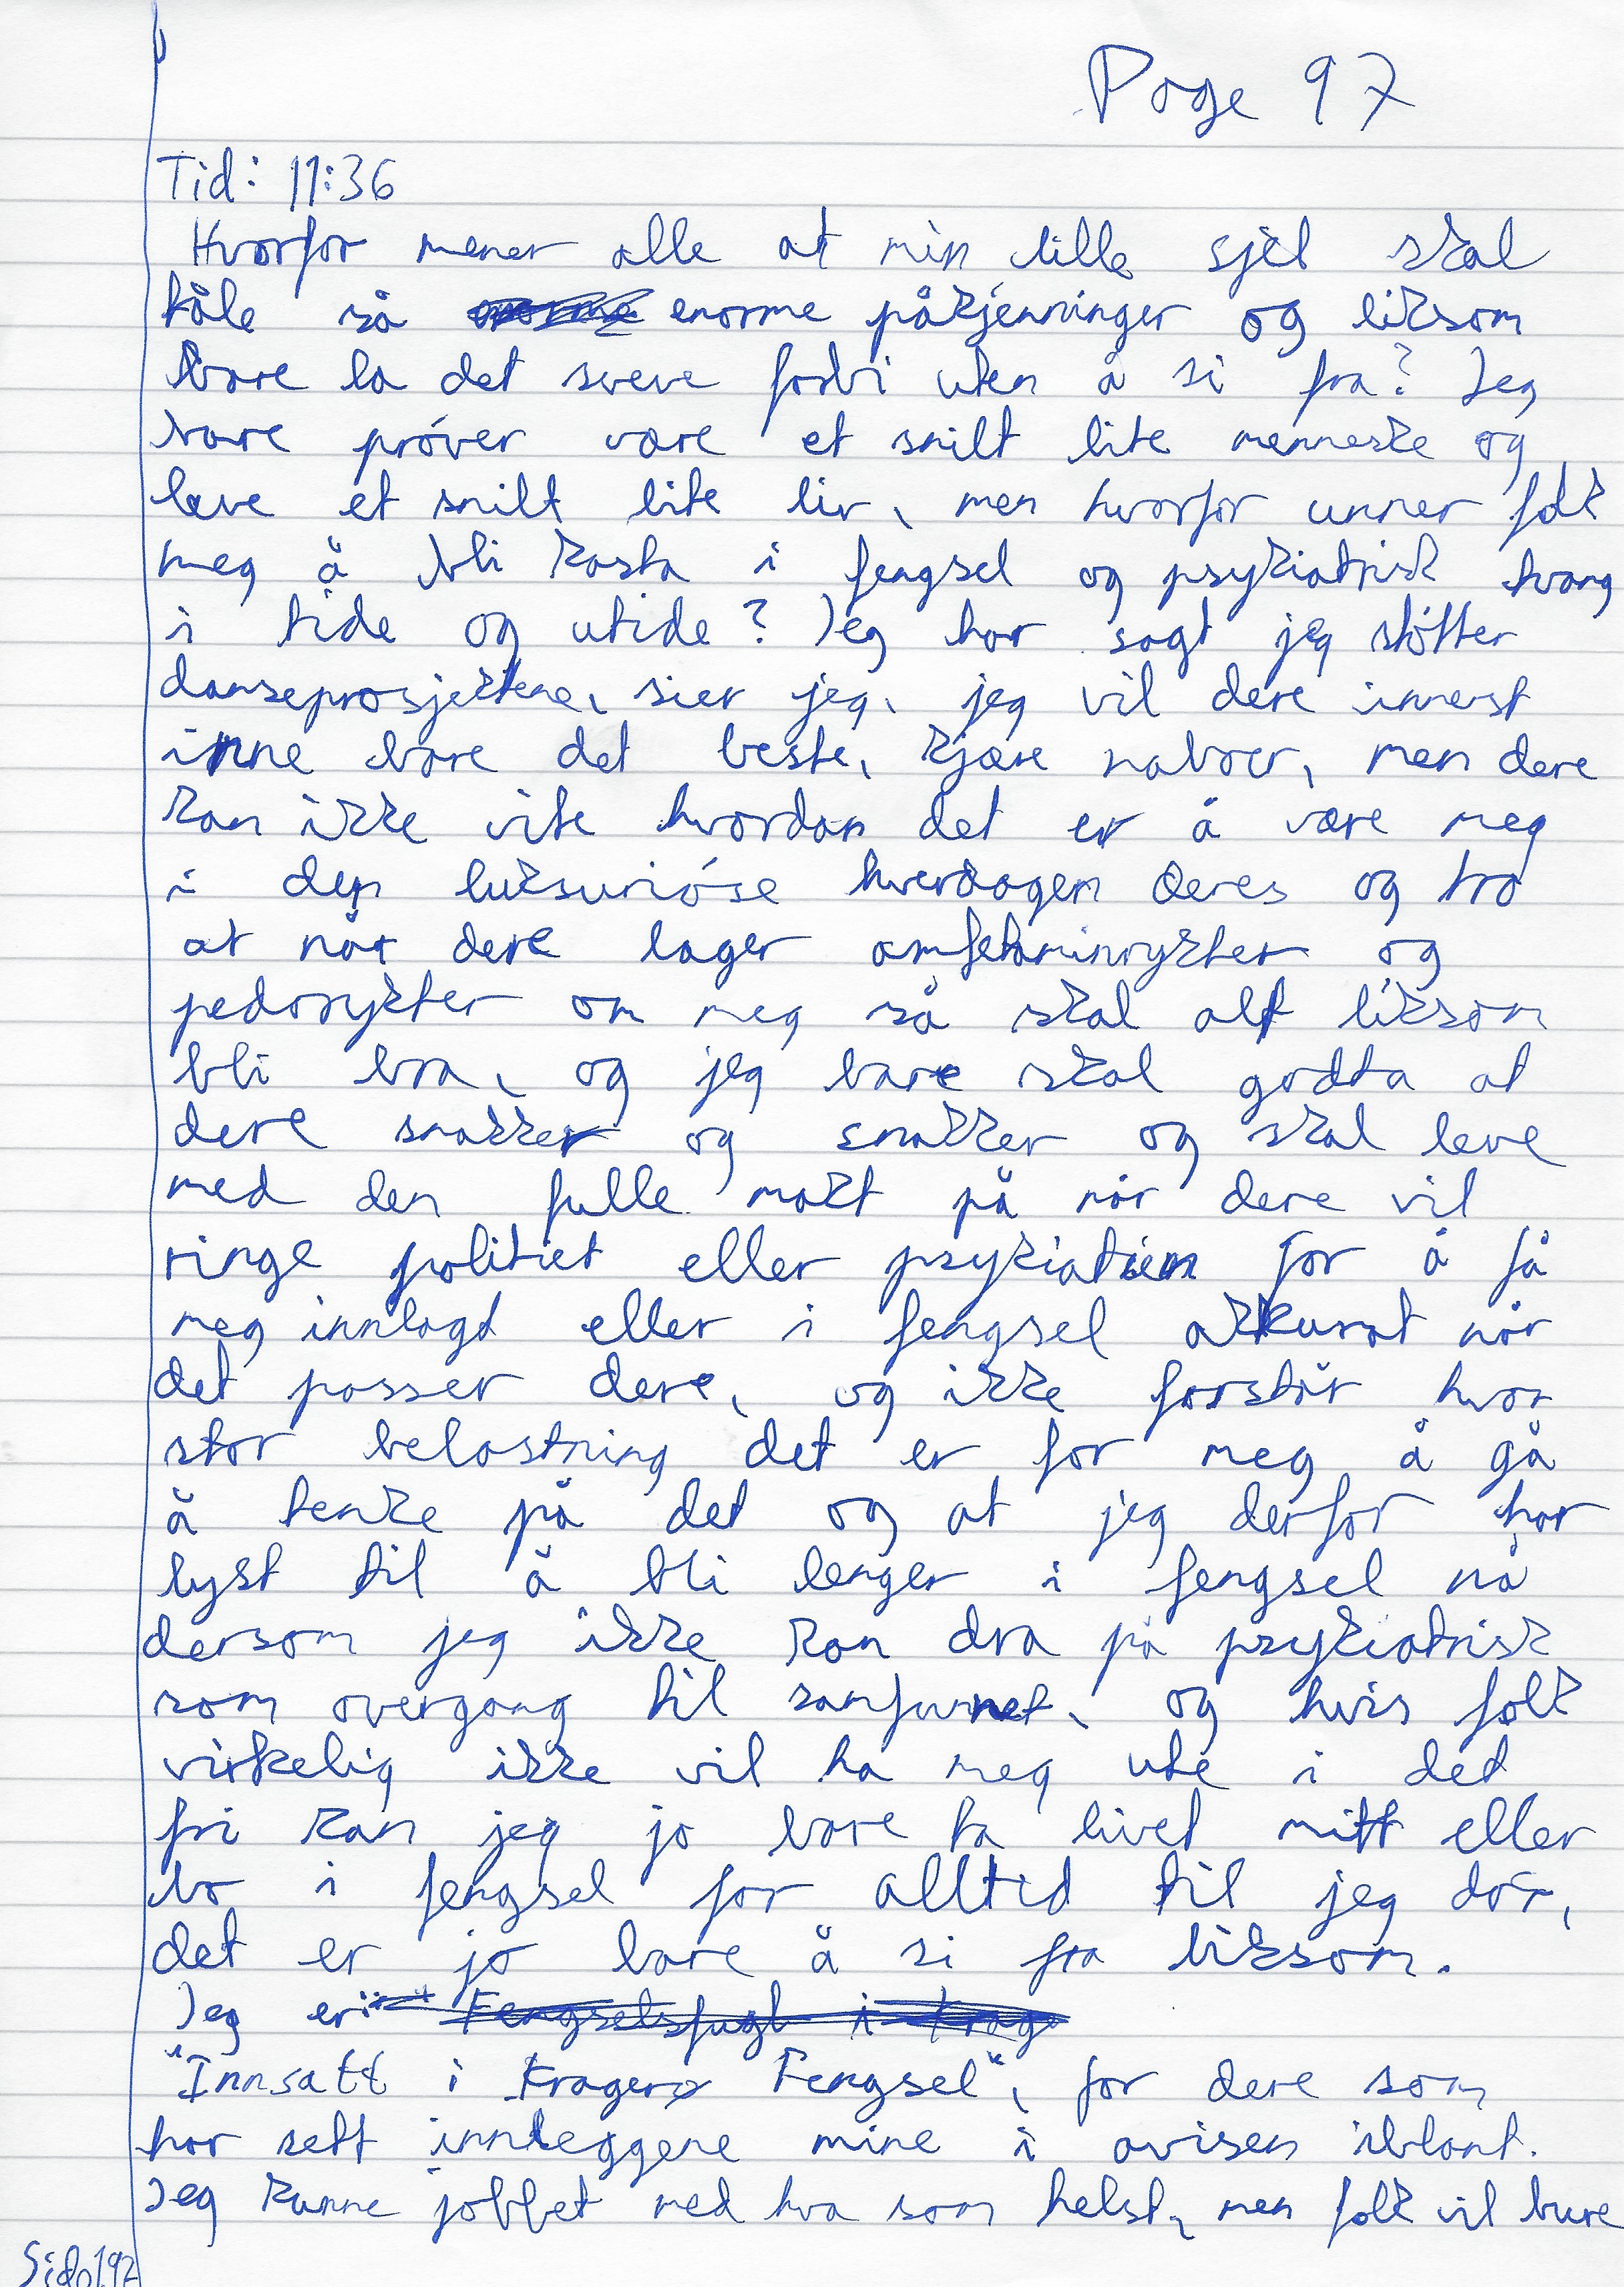 Page 97
Tid: 11:36
Hvorfor mener alle at min lille sjel skal
tåle så enorme påkjenninger og liksom
bare la det sveve forbi uten å si fra? Jeg
bare prøver være et snilt lite menneske og
leve et snilt lite liv, men hvorfor unner folk
meg å bli kasta i fengsel og psykiatrisk tvang
i tide og utide? Jeg har sagt jeg støtter
danseprosjektene, sier jeg, jeg vil dere innerst
inne bare det beste, kjære naboer, men dere
kan ikke vite hvordan det er å være meg
i den luksuriøse hverdagen deres og tro
at når dere lager amfetaminrykter og
pedorykter om meg så skal alt liksom
bli bra, og jeg bare skal godta at
dere snakker og snakker og skal leve
med den fulle makt på når dere vil
ringe politiet eller psykiatrien for å få
meg innlagt eller i fengsel akkurat når
det passer dere, og ikke forstår hvor
stor belastning det er for meg å gå
å tenke på det og at jeg derfor har
lyst til å bli lenger i fengsel nå
dersom jeg ikke kan dra på psykiatrisk
som overgang til samfunnet, og hvis folk
virkelig ikke vil ha meg ute i det
fri kan jeg jo bare ta livet mitt eller
bo i fengsel for alltid til jeg dør,
det er jo bare å si fra liksom.
Jeg er: Fengselsfugl i Krag
"Innsatt i Kragerø Fengsel", for dere som
har sett innleggene mine i avisen iblant.
Jeg kunne jobbet med hva som helst, men folk vil bure